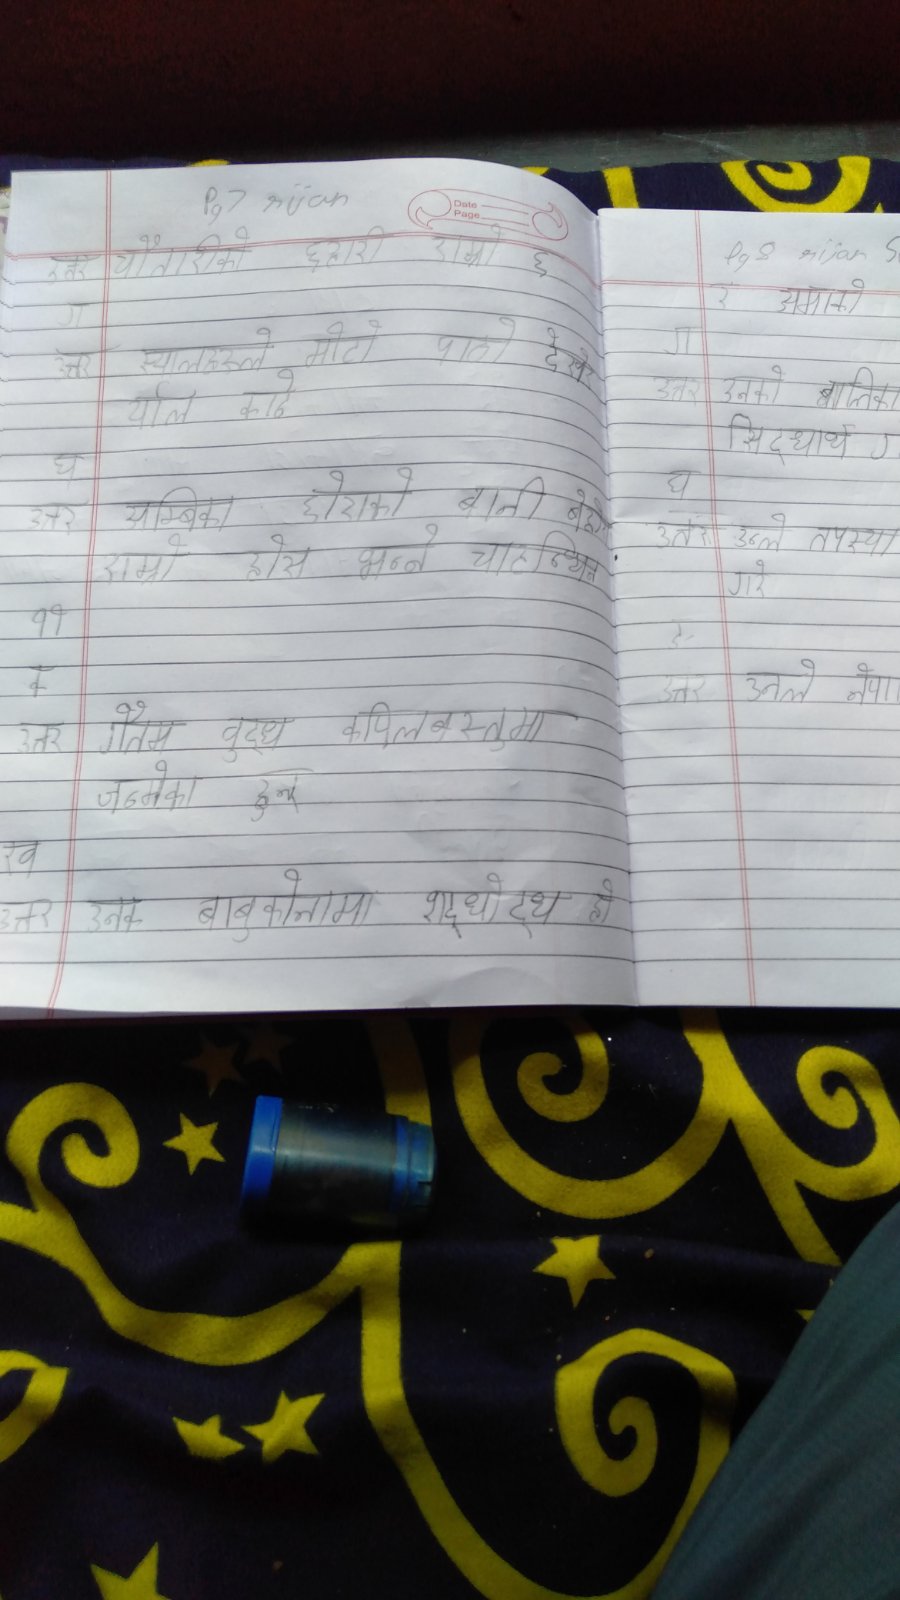 Pg7 rijan
Date
Page
उत्तर चौतारीको छहारी राम्रो छ
ग
उत्तर स्यालहरूले मोटो पाठो देखेर
र्याल काढे
घ
उत्तर अम्बिका छोराको बानी
राम्रो होस भन्ने चाहन्थिन
११
क
उत्तर गौतम वुद्ध कपिलबस्तुमा
जन्मेका हुन्
ख
उत्तर उनक बाबुकोनामा शद्धोद्ध हो
Pg8 rijan S
र आमाको
ग
उत्तर उनको बालिका
सिद्धार्थ ग
घ
उत्तर उन्ले तपस्या
गरे
ङ
उत्तर उनले नेपा